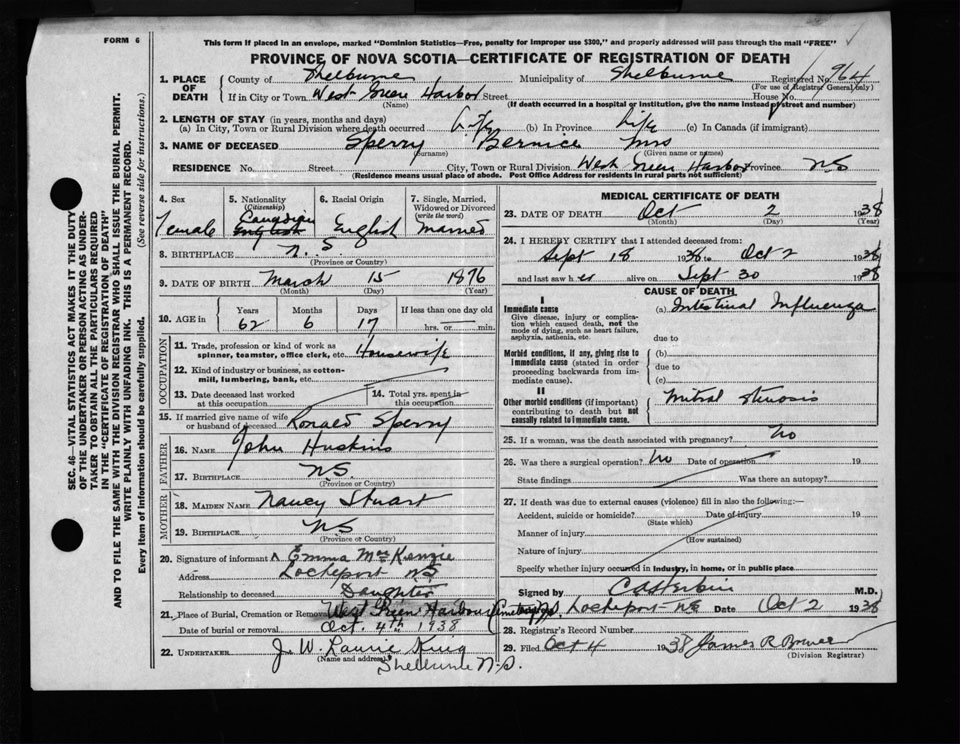 FORM 6
This form if placed in an envelope, marked "Dominion Statistics—Free, penalty for improper use $300," and properly addressed will pass through the mail "FREE"
PROVINCE OF NOVA SCOTIA—CERTIFICATE OF REGISTRATION OF DEATH
1. PLACE OF DEATH County of Shelburne Municipality of Shelburne Registered No. 964
(For use of Registrar General only)
If in City or Town West Green Harbor Street House No.
(Name) (If death occurred in a hospital or institution, give the name instead of street and number)
2. LENGTH OF STAY (in years, months and days)
(a) In City, Town or Rural Division where death occurred Life (b) In Province Life (c) In Canada (if immigrant)
3. NAME OF DECEASED Sperry Bernice Mrs
(Surname) (Given name or names)
RESIDENCE No. Street City, Town or Rural Division West Green Harbor Province NS
(Residence means usual place of abode. Post Office Address for residents in rural parts not sufficient)
4. Sex Female
5. Nationality (Citizenship) Canadian English
6. Racial Origin English
7. Single, Married, Widowed or Divorced (write the word) Married
8. BIRTHPLACE N. S
(Province or Country)
9. DATE OF BIRTH March 15 1876
(Month) (Day) (Year)
10. AGE in Years Months Days If less than one day old
62 6 17 hrs. or min.
OCCUPATION
11. Trade, profession or kind of work as spinner, teamster, office clerk, etc. Housewife
12. Kind of industry or business, as cotton-mill, lumbering, bank, etc.
13. Date deceased last worked at this occupation
14. Total yrs. spent in this occupation
15. If married give name of wife or husband of deceased Ronald Sperry
FATHER
16. NAME John Huskins
17. BIRTHPLACE NS
(Province or Country)
MOTHER
18. MAIDEN NAME Nancy Stuart
19. BIRTHPLACE NS
(Province or Country)
20. Signature of informant Emma MacKenzie
Address Lockeport NS
Relationship to deceased Daughter
21. Place of Burial, Cremation or Removal West Green Harbour Cemetery
Date of burial or removal Oct. 4th 1938
22. UNDERTAKER J. W. Laurie King
(Name and address) Shelburne N.S.
MEDICAL CERTIFICATE OF DEATH
23. DATE OF DEATH Oct 2 1938
(Month) (Day) (Year)
24. I HEREBY CERTIFY that I attended deceased from:
Sept 18 1938 to Oct 2 1938
and last saw her alive on Sept 30 1938
CAUSE OF DEATH
I
Immediate cause
Give disease, injury or complication which caused death, not the mode of dying, such as heart failure, asphyxia, asthenia, etc.
(a) Intestinal Influenza
due to
Morbid conditions, if any, giving rise to Immediate cause (stated in order proceeding backwards from immediate cause).
(b)
due to
(c)
II
Other morbid conditions (if important) contributing to death but not causally related to Immediate cause.
Mitral Stenosis
25. If a woman, was the death associated with pregnancy? No
26. Was there a surgical operation? No Date of operation 19
State findings Was there an autopsy?
27. If death was due to external causes (violence) fill in also the following:—
Accident, suicide or homicide? Date of injury 19
(State which)
Manner of injury
(How sustained)
Nature of injury
Specify whether injury occurred in industry, in home, or in public place
Signed by M.D.
Lockeport NS Date Oct 2 1938
28. Registrar's Record Number
29. Filed Oct 4 1938 James R
(Division Registrar)
SEC. 46—VITAL STATISTICS ACT MAKES IT THE DUTY
OF THE UNDERTAKER OR PERSON ACTING AS UNDER-
TAKER TO OBTAIN ALL THE PARTICULARS REQUIRED
IN THE "CERTIFICATE OF REGISTRATION OF DEATH"
AND TO FILE THE SAME WITH THE DIVISION REGISTRAR WHO SHALL ISSUE THE BURIAL PERMIT.
WRITE PLAINLY WITH UNFADING INK. THIS IS A PERMANENT RECORD.
Every item of information should be carefully supplied. (See reverse side for instructions.)